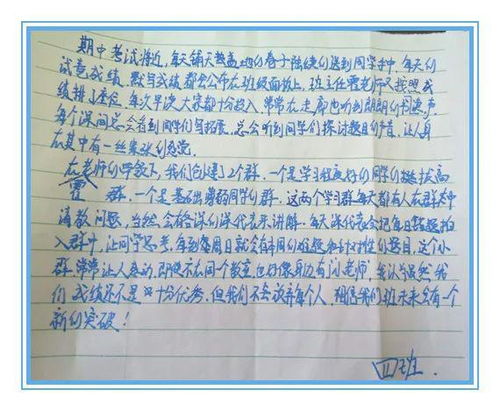 期中考试将近,每天铺天盖地的卷子陆续的送到同学手中,每天的
试卷成绩 默写成绩都会公布在班级面板上,班主任霍老师又按照成
绩排了座位 每次早读大家都十分投入,常常在走廊也听到朗朗的书声
每个课间总会看到同学们写招案,总会听到同学们探讨题目的声音,让人身
在其中有一丝紧张的感觉
在老师的呼鼓下,我们创建了2个群.一个是学习程度好的同学们拔高
霍 群.一个是基础薄弱同学的群.这两个学习群每天都有人在群众中
请教问题 当然会有各课的课代表来讲解.每天课代表会把每日错题拍
入群中,让同学思考,每到每周日就会有
题目,这个小
群常常让人感动.即使不在同一个教室也好像身边有
老师,我认为虽然我
们成绩还不是十分优秀,但我们不会放弃每个人,相信我们班未来会有一个
新的突破!
四班.